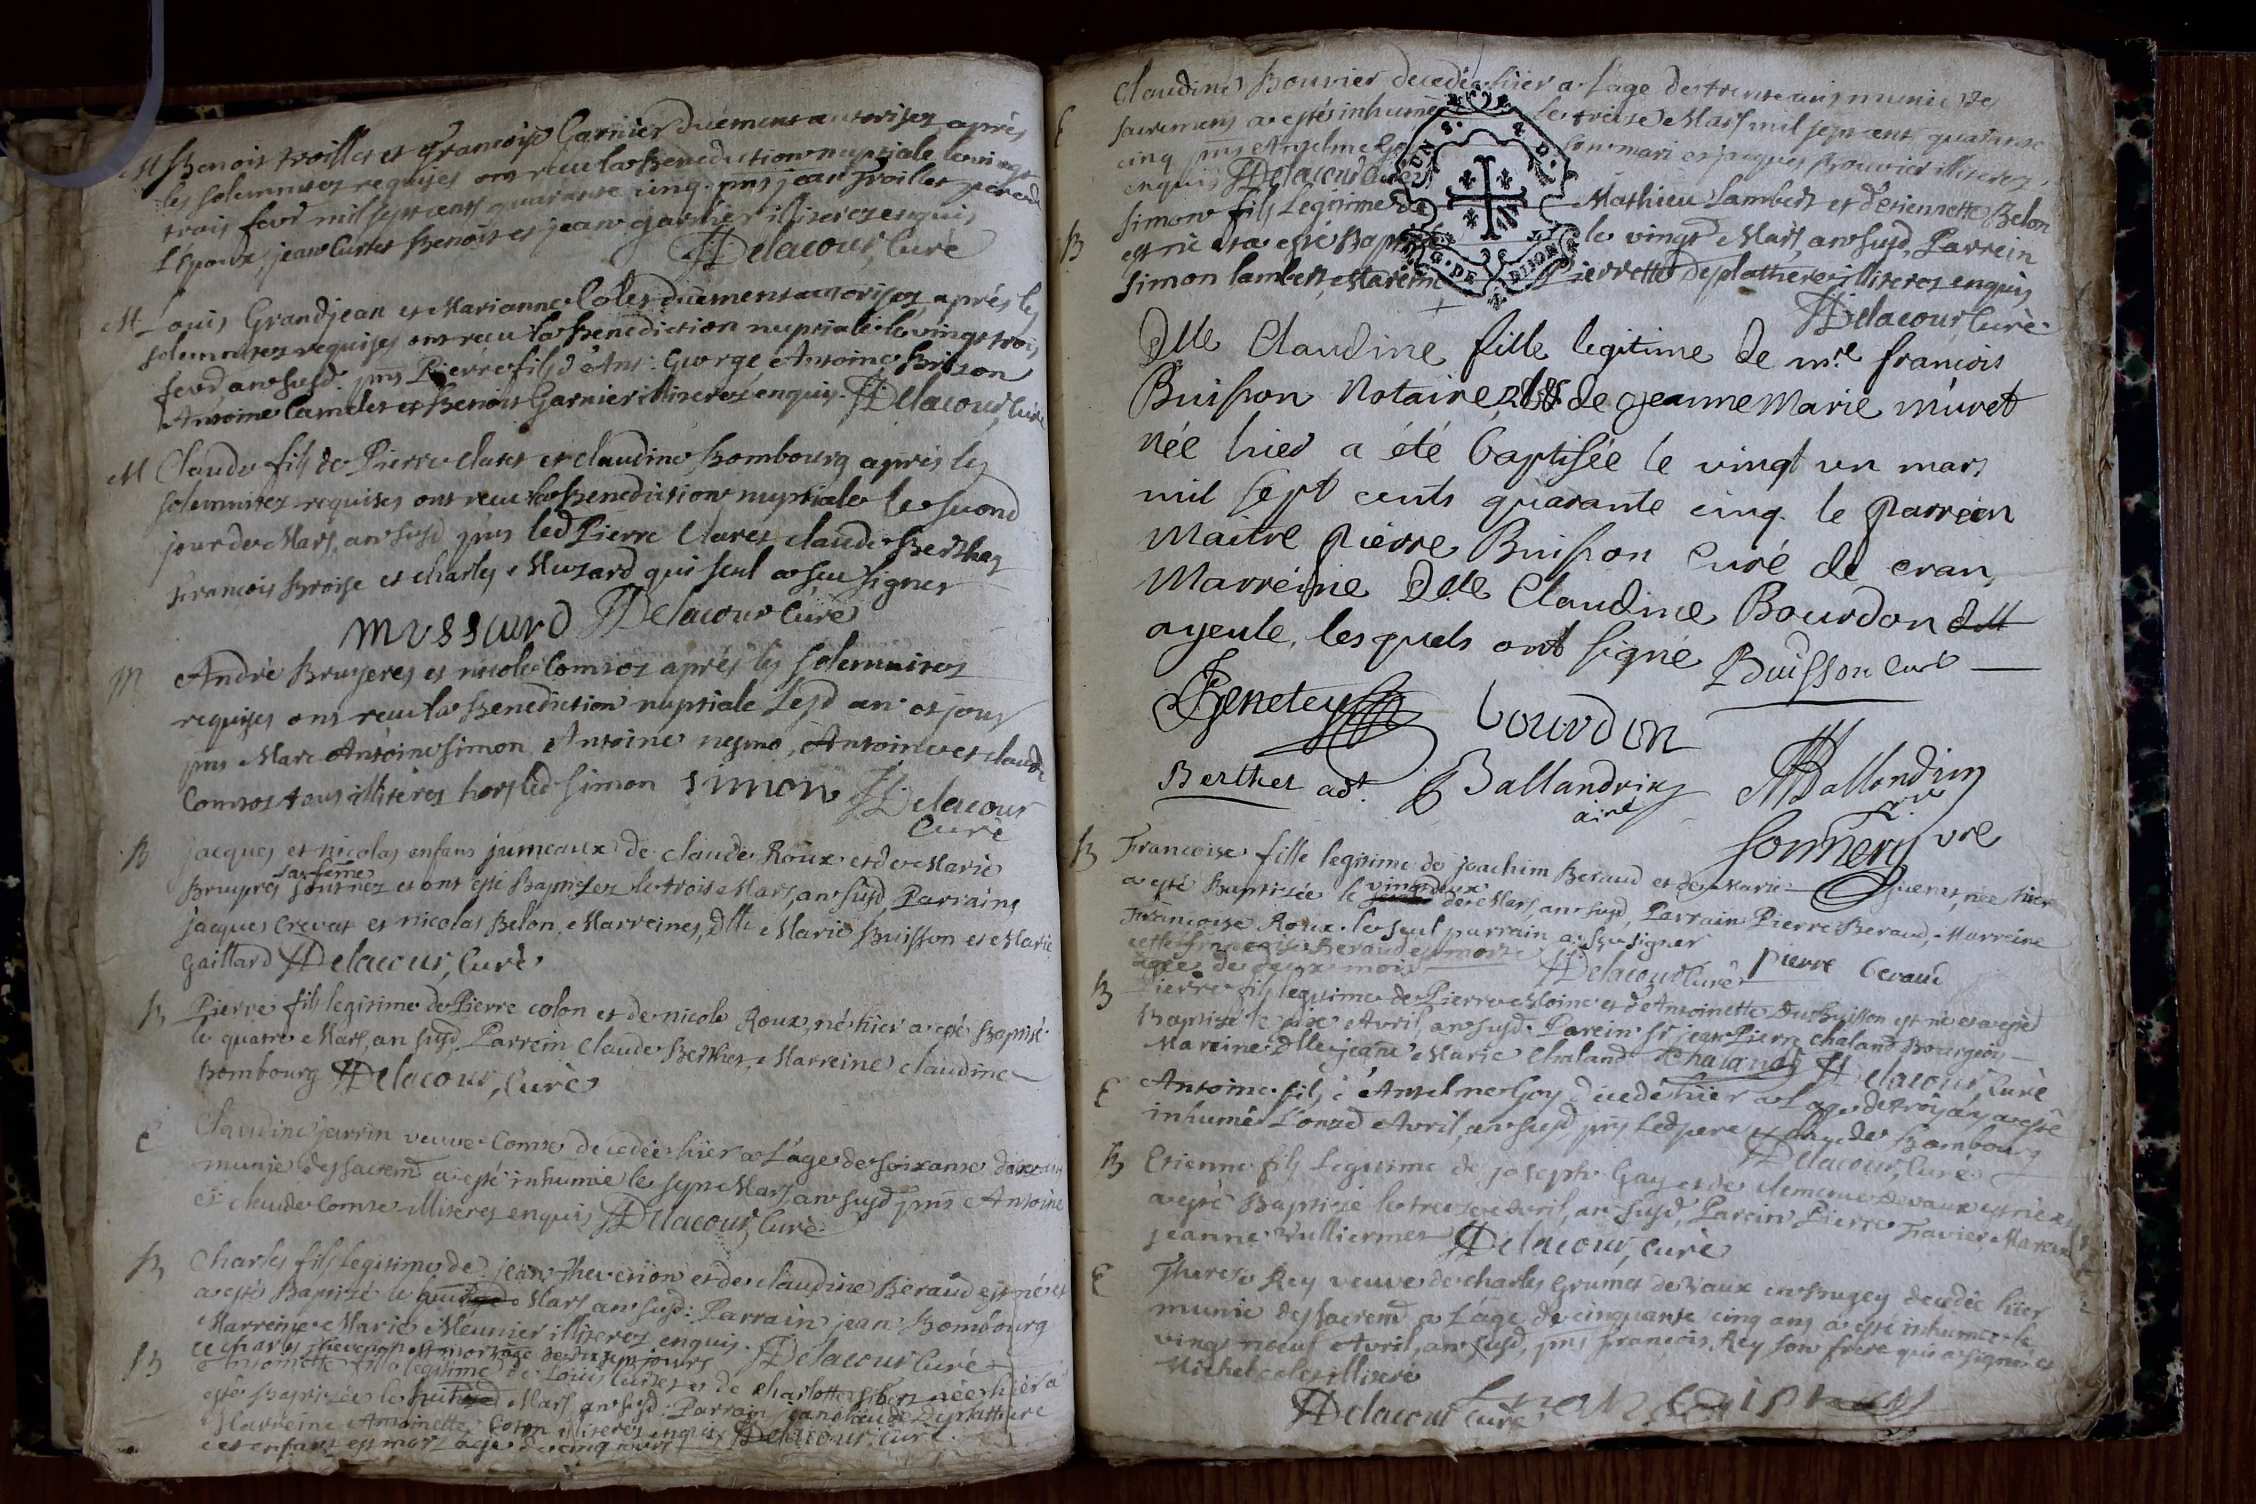 M Benoit troillet et Francoise Garnier duëment autorisez après
les solemnitez requises ont recu la Benediction nuptiale le vingt
trois fevr mil sept cents quarante cinq. pnts jean troillet pere de
L'Epoux, jean Curtet Benoit et jean garnier illiterez enquis
Delacour, Curé
M Louis Grandjean et Marianne Colet duëment autorisez, après les
solemnitez requises ont recu la Benediction nuptiale le vingt trois
fevr, an susd. pnts Pierre fils d'Ant: George, Antoine Brison
Antoine Camelet et Benoit Garnier illiterez enquis. Delacour, Curé
M Claude fils de Pierre Claret et claudine Bombourg après les
solemnitez requises ont recu la Benediction nuptiale le second
jour de Mars, an susd pnts led Pierre Claret, claude Berthet
francois Broise et charles Muzard qui seul a scu signer
mussard Delacour Curé
M André Bruyeres et nicole Comtet après les solemnitez
requises ont recu la Benediction nuptiale Lesd an et jour
pnts Marc Antoine Simon, Antoine nesme, Antoine et claude
Comtet tous illiterez hors led Simon simon Delacour
Curé
B jacques et nicolas enfans jumeaux de claude Roux et de Marie
sa femme
Bruyres sont nez et ont esté Baptisez le trois Mars, an susd, Parrains
jacques Crevat et nicolas Belon, Marreines, Dlle Marie Buisson et Marie
Gaillard Delacour, Curé
B Pierre fils legitime de Pierre colon et de nicole Roux, né hier a esté Baptisé
le quatre Mars, an susd, Parrein Claude Berthet, Marreine claudine
Bombourg Delacour, Curé
E Claudine jarrin veuve Comte decedée hier a L'age de soixante douze ans
munie des sacremt a esté inhumée le sept Mars an susd pnts Antoine
et claude Comte illiterez enquis Delacour, Curé
B Charles fils legitime de jean thevenon et de claudine Beraud est né et
a esté Baptisé le Mars an susd: Parrain jean Bombourg
Marreine Marie Meunier illiterez enquis. Delacour Curé
ce charles thevenon est mort agé de dix sept jours
B Antoinette fille legitime de Louis Curtet et de charlotte née hier a
esté Baptisée le Mars an susd: Parrain jean Desplatture
Marreine Antoinette Colon illiterez enquis Delacour, Curé.
cet enfant est mort agé de cinq jours
Claudine Bouvier decedée hier a L'age de trente ans munie des
E sacremens a esté inhumée le treize Mars mil sept cents quarante
cinq pnts Anselme Goy son mari et jacques Bouvier illiterez
enquis Delacour Curé
Simon fils Legitime de Mathieu Lambert et d'etiennette Belon
B est né et a esté Baptisé le vingt Mars, an susd, Parrein
Simon lambert, Mareine Pierrette Desplatture illiterez enquis
Delacour Curé
Dlle Claudine fille legitime de mre francois
Buisson Notaire, de jeanne Marie muret
née hier a été baptisée le vingt un mars
mil sept cents quarante cinq. le parrein
Maitre pierre Buisson Curé de cran,
Marreine Dlle Claudine Bourdon
ayeule, lesquels ont signé Buisson curé
bourdon
Berthet adt. Ballandrin Ballandrin
ainé
Sonnery vre
B Francoise fille legitime de joachim Beraud et de Marie née hier
vingt deux
a esté Baptisée le de Mars, an susd, Parrain Pierre Beraud, Marreine
Francoise Roux. le seul parrain a scu signer
cette francoise Beraud est morte Delacour Curé pierre beraud
agée de deux mois
B Pierre fils legitime de Pierre Moine et d'Antoinette Dubuisson est né et a esté
Baptisé le dix Avril, an susd. Parein sr jean Pierre chaland Bourgeois
Mareine Dlle jeane Marie Chaland Delacour, Curé
E Antoine fils d'Anselme Goy decedé hier a L'age de trois ans a esté
inhumé L'onze Avril, an susd, pnts led pere et de Bombourg
Delacour, Curé
B Etienne fils Legitime de joseph Gay et de clemence Devaux est né et
a esté Baptisé le treize Avril, an susd, Parein Pierre Travier, Mareine
jeanne Vulliermet Delacour, Curé
E Therese Rey veuve de charles Grumet de Vaux en Bugey decedée hier
munie des sacremt a L'age de cinquante cinq ans a esté inhumée le
vingt noeuf Avril, an susd, pnts francois Rey son frere qui a signé et
Michel colet illiteré
Delacour Curé